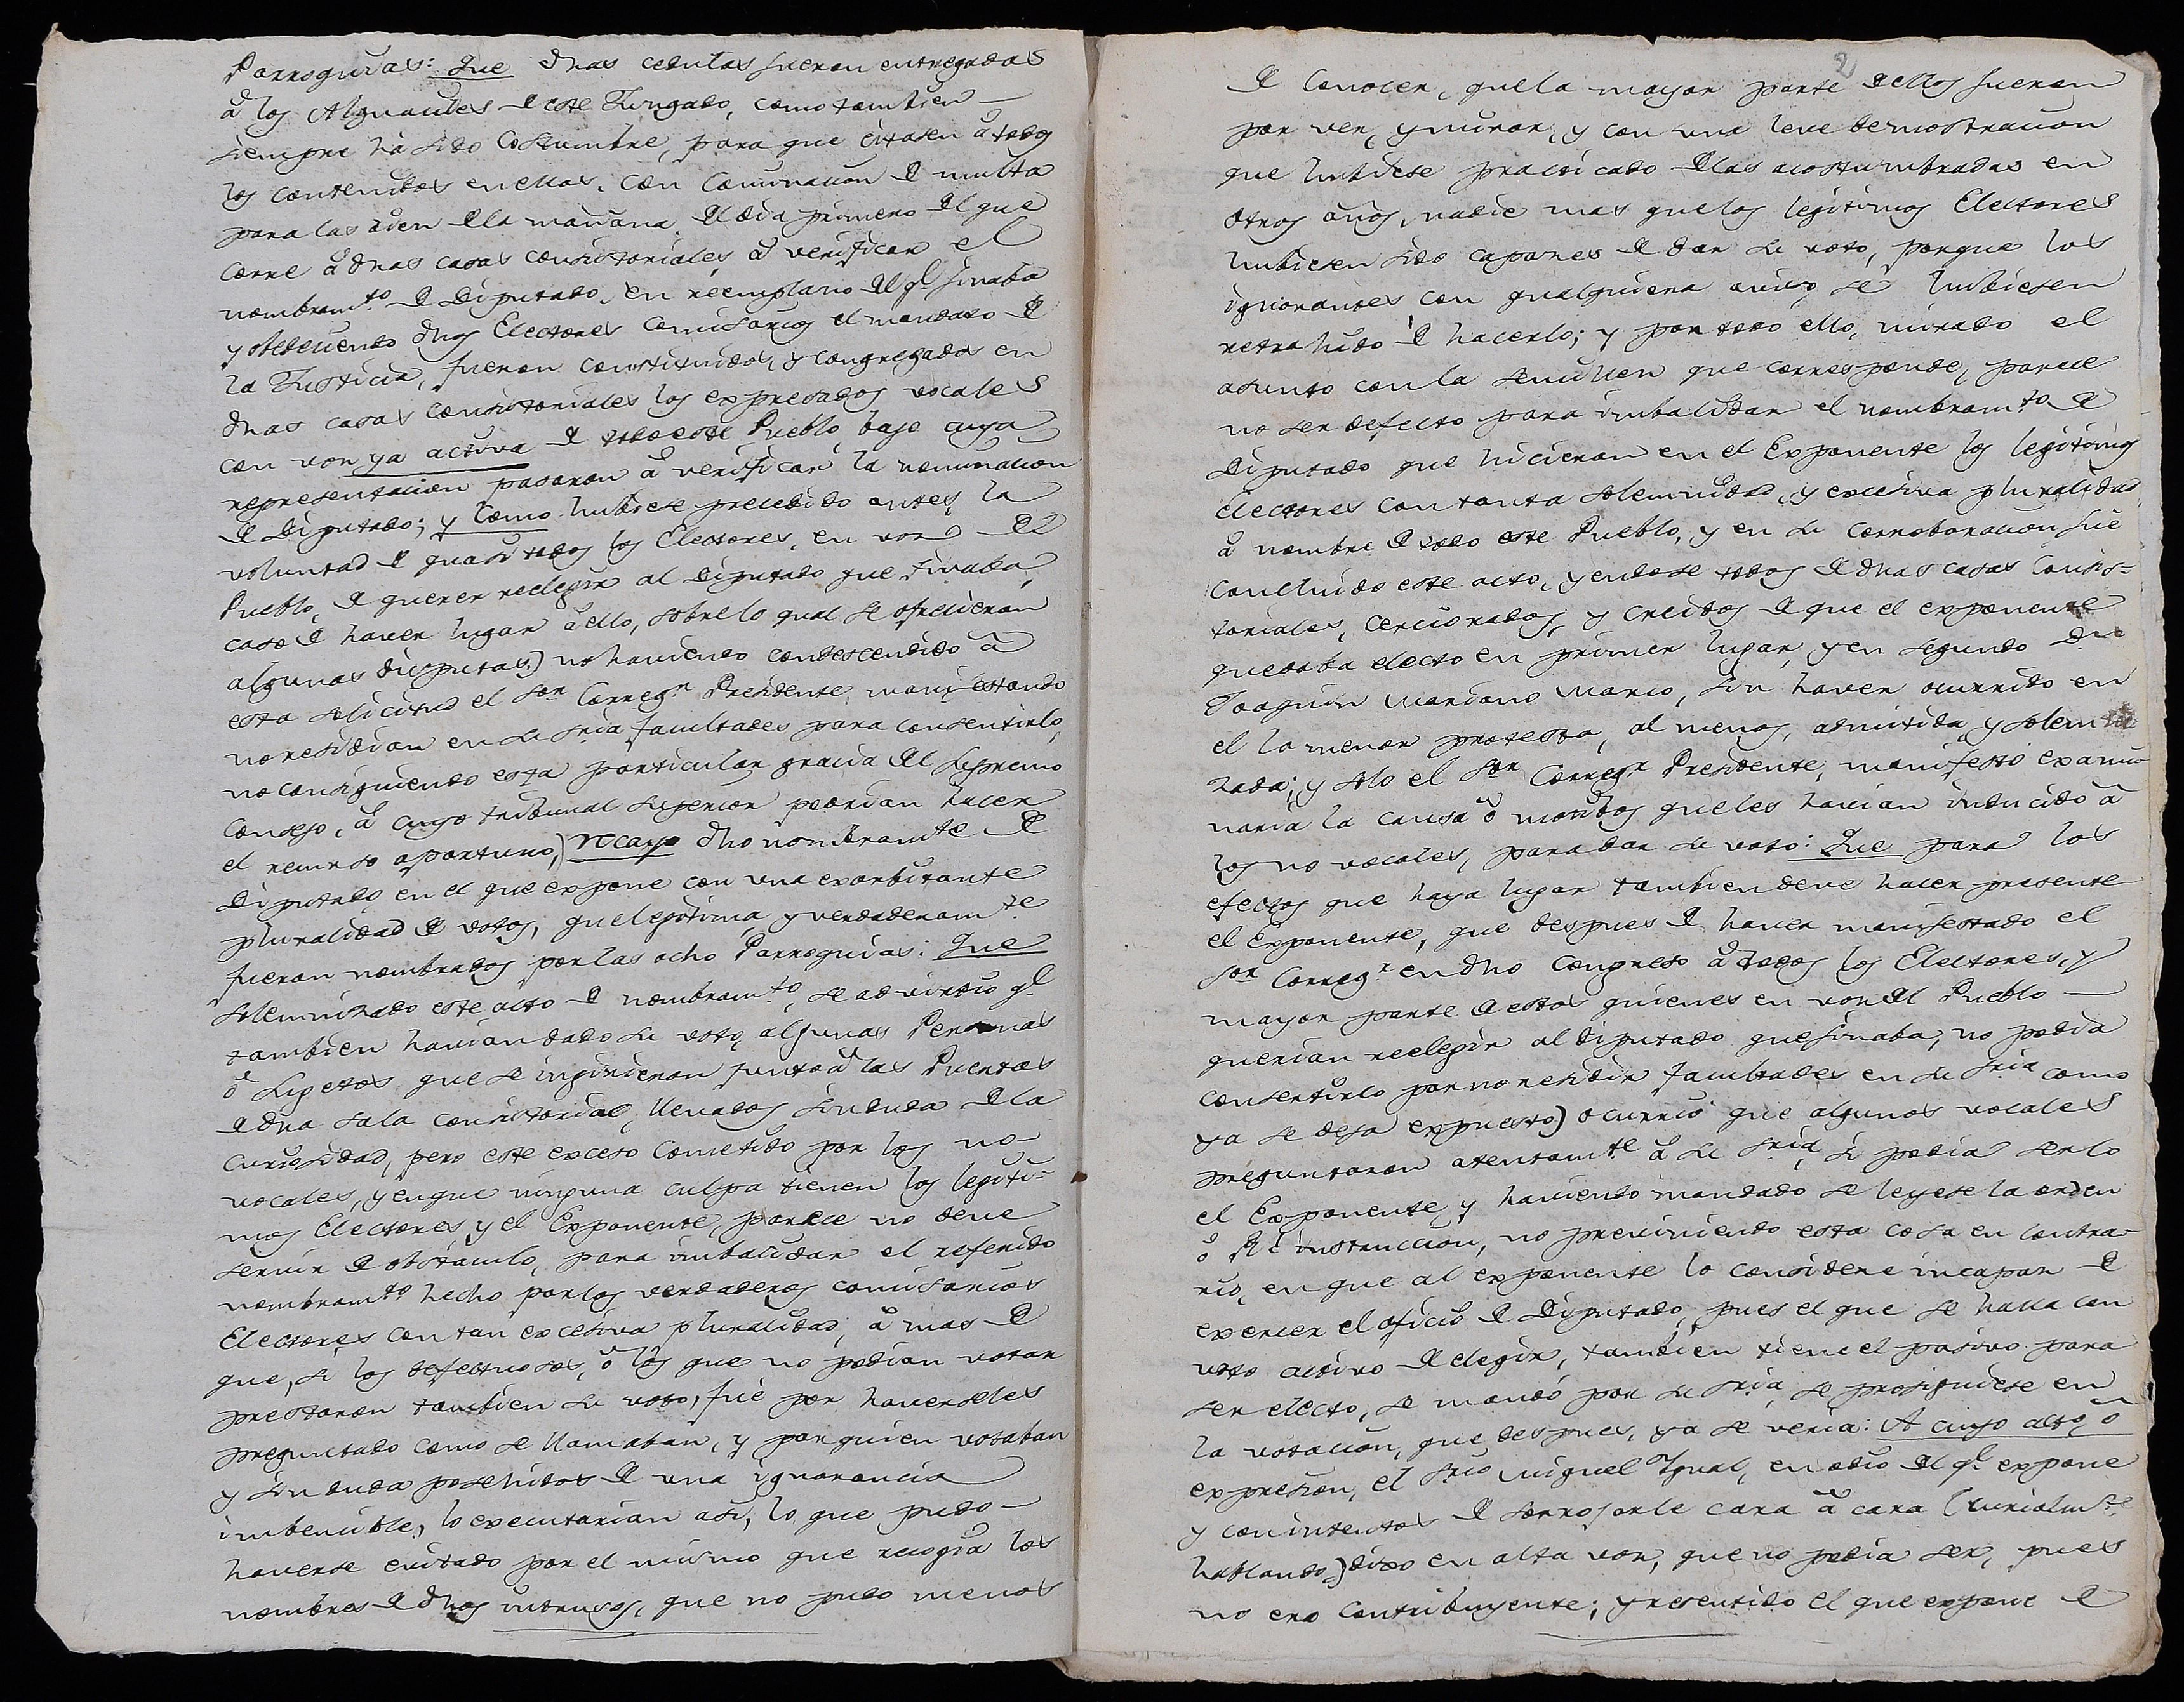 Parroquias: Que dhas cedulas fueron entregadas
â los Alguaciles de este Juzgado, como tambien
siempre há sido costumbre, para que citasen â todos
los contenidos en ellas, con cominacion de multa
para las diez de la mañana del dia primero del que
corre â dhas casas consistoriales, â verificar el
nombram.to de Diputado, en reemplazo del q.l finaba
y obedeciendo dhos Electores comisarios el mandato de
la Justicia, fueron constituidos, y congregados en
dhas casas consistoriales los expresados vocales
con voz ya activa de todo este Pueblo, bajo cuya
representacion pasaron â verificar la nominacion
de Diputado; y como hubiese precedido antes, la
voluntad de quasi todos los Electores, en voz del
Pueblo, de querer reelegir al Diputado que finaba,
caso de haver lugar â ello, sobre lo qual se ofrecieron
algunas disputas,) no haviendo condescendido â
esta solicitud el Sor. Correg.r Presidente, manifestando
no residian en su Sria facultades para consentirlo,
no consiguiendo esta particular gracia del Supremo
Consejo, â cuyo tribunal superior podrian hacer
el recurso oportuno,) recayo dho nombramto de
Diputado en el que expone con una exorbitante
pluralidad de votos, que legitima, y verdaderam.te
fueron nombrados por las ocho Parroquias: Que
solemnizado este acto de nombram.to, se advirtió q.e
tambien havian dado su voto, algunas Personas
ô sugetos que se ingirieron junto â las Puertas
de dha sala consistorial, llevados sin duda de la
curiosidad, pero este exceso cometido por los no
vocales, y en que ninguna culpa tienen los legiti-
mos Electores, y el Exponente, parece no deve
servir de obstaculo, para imbalidar el referido
nombram.to hecho por los verdaderos comisarios
Electores con tan excesiva pluralidad; â mas de
que, si los defectuosos, ô los que no podian votar
prestaron tambien su voto, fue por haverseles
preguntado como se llamaban, y por quien votaban
y sin duda posehidos de una ignorancia
imbencible, lo executarian asi, lo que pudo
haverse evitado por el mismo que recogia los
nombres de dhos intrusos, que no pudo menos
2
de conocer, que la mayor parte de ellos fueron
por ver, y mirar, y con una leve demostracion
que hubiese practicado de las acostumbradas en
otros años, nadie mas que los legitimos Electores
hubiesen sido capaces de dar su voto, porque los
ignorantes con qualquiera aviso, se hubiesen
retrahido de hacerlo; y por todo ello, mirado el
asunto con la sencillez que corresponde, parece
no ser defecto para imbalidar el nombram.to de
Diputado que hicieron en el Exponente los legitimos
electores con tanta solemnidad, y excesiva pluralidad
â nombre de todo este Pueblo, y en su corroboracion fue
concluido este acto, yendose todos de dhas casas Consis-
toriales, cercionados, y creidos de que el exponente
quedaba electo en primer lugar, y en segundo Dn
Joaquin Mariano Marco, sin haver ocurrido en
el la menor protesta, al menos, admitida, y solem
nada; y solo el Sor Correg.r Presidente, manifestó exami
naria la causa ô motivos que les havian inducido â
los no vocales, para dar su voto: Que para los
efectos que haya lugar tambien deve hacer presente
el Exponente, que despues de haver manifestado el
Sor Correg.r en dho Congreso â todos los Electores, y
mayor parte de estos quienes en voz del Pueblo
querian reelegir al Diputado que finaba, no podia
consentirlo por no residir facultades en su Sria como
ya se deja expuesto) ocurrió que algunos vocales
preguntaron atentam.te â su Sria, si podia serlo
el Exponente, y haviendo mandado se leyese la orden
ô Rl instruccion, no previniendo esta cosa en contra-
rio, en que al exponente lo considere incapaz de
exercer el oficio de Diputado, pues el que se halla con
voto activo de elegir, tambien tiene el pasivo para
ser electo, se mandó por su Sria, se prosiguiese en
la votacion, que despues, ya se veria: A cuyo acto, ô
expresion, el Srio Miguel Igual, en odio del q.e expone
y con intentos de sonrojarle cara â cara (curialm.te
hablando,) dixo en alta voz, que no podia ser, pues
no era contribuyente; y resentido el que expone de